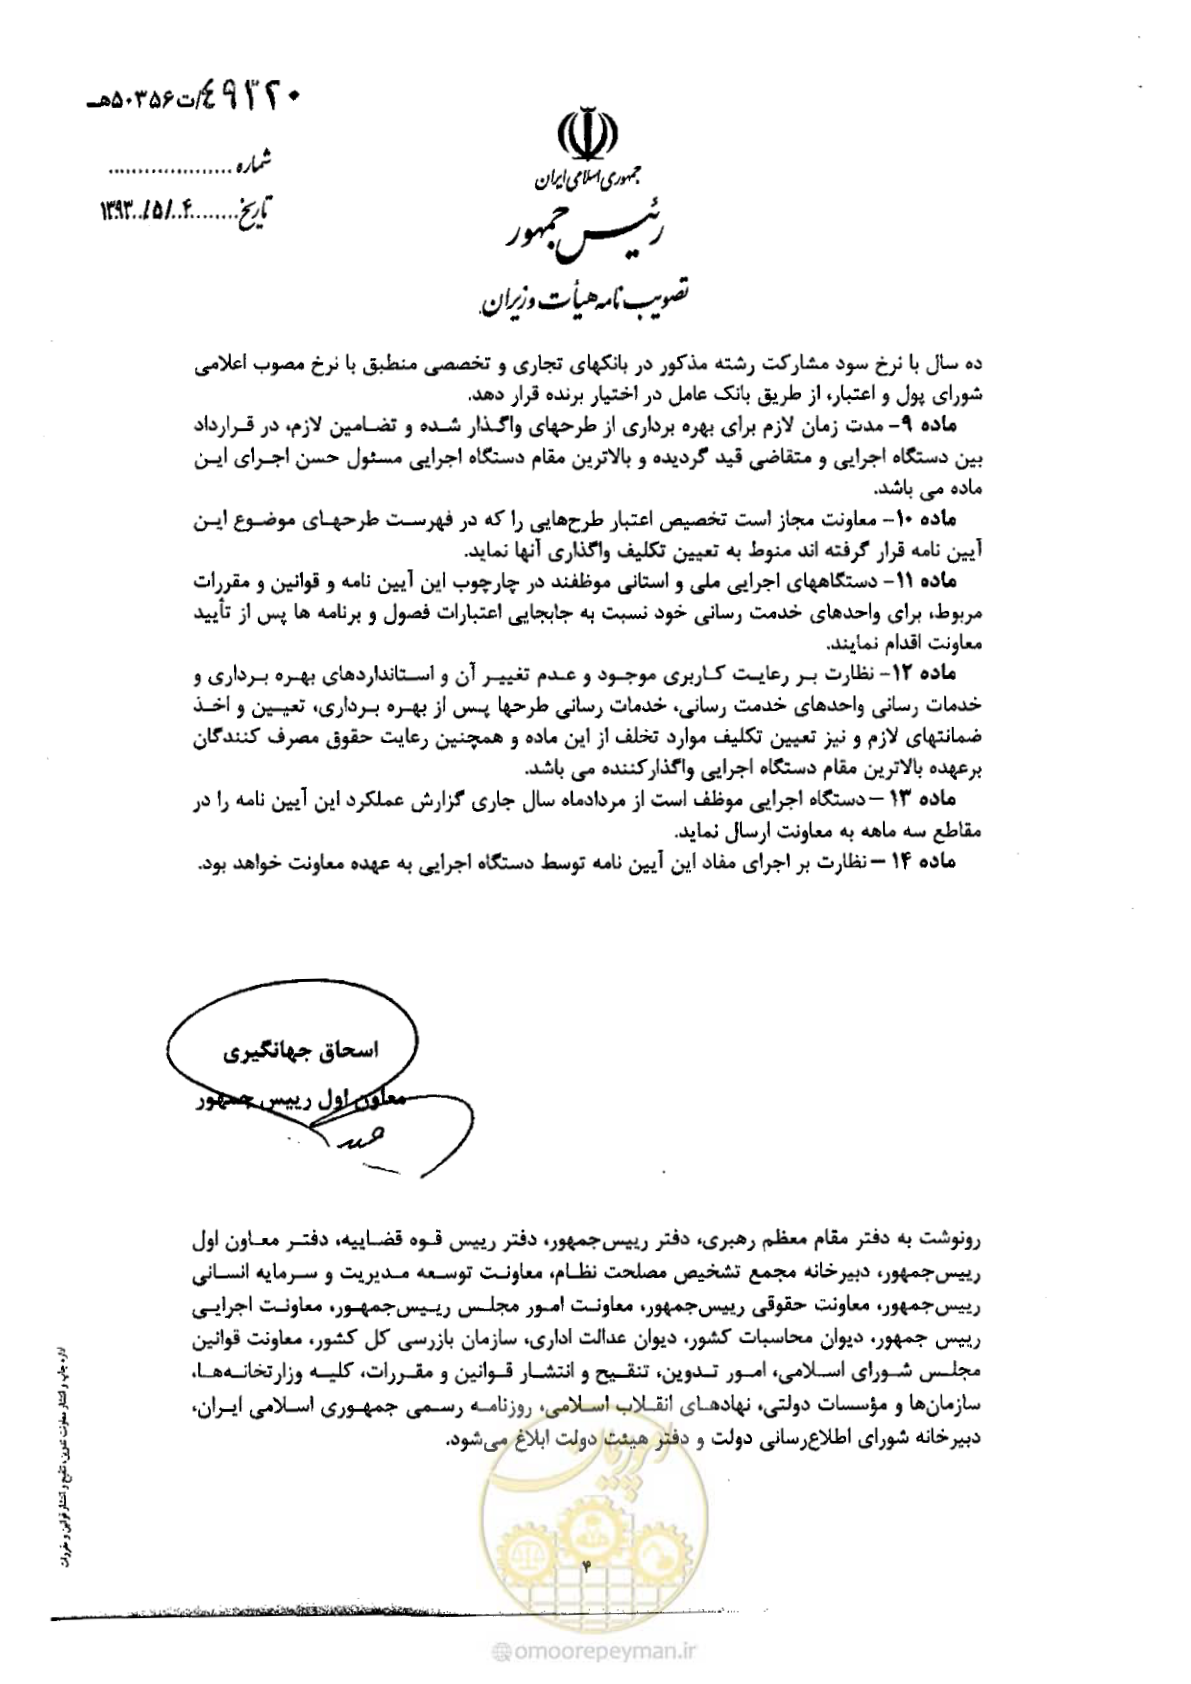 ۴۹۳۲۰/ت۵۰۳۵۶هـ
شماره ....................
تاریخ........۱۳۹۳/۵/۰۴
جمهوری اسلامی ایران
رئیس جمهور
تصویب نامه هیأت وزیران
ده سال با نرخ سود مشارکت رشته مذکور در بانکهای تجاری و تخصصی منطبق با نرخ مصوب اعلامی
شورای پول و اعتبار، از طریق بانک عامل در اختیار برنده قرار دهد.
ماده ۹- مدت زمان لازم برای بهره برداری از طرحهای واگذار شده و تضامین لازم، در قرارداد
بین دستگاه اجرایی و متقاضی قید گردیده و بالاترین مقام دستگاه اجرایی مسئول حسن اجرای این
ماده می باشد.
ماده ۱۰- معاونت مجاز است تخصیص اعتبار طرح‌هایی را که در فهرست طرحهای موضوع این
آیین نامه قرار گرفته اند منوط به تعیین تکلیف واگذاری آنها نماید.
ماده ۱۱- دستگاههای اجرایی ملی و استانی موظفند در چارچوب این آیین نامه و قوانین و مقررات
مربوط، برای واحدهای خدمت رسانی خود نسبت به جابجایی اعتبارات فصول و برنامه ها پس از تأیید
معاونت اقدام نمایند.
ماده ۱۲- نظارت بر رعایت کاربری موجود و عدم تغییر آن و استانداردهای بهره برداری و
خدمات رسانی واحدهای خدمت رسانی، خدمات رسانی طرحها پس از بهره برداری، تعیین و اخذ
ضمانتهای لازم و نیز تعیین تکلیف موارد تخلف از این ماده و همچنین رعایت حقوق مصرف کنندگان
برعهده بالاترین مقام دستگاه اجرایی واگذارکننده می باشد.
ماده ۱۳ – دستگاه اجرایی موظف است از مردادماه سال جاری گزارش عملکرد این آیین نامه را در
مقاطع سه ماهه به معاونت ارسال نماید.
ماده ۱۴ – نظارت بر اجرای مفاد این آیین نامه توسط دستگاه اجرایی به عهده معاونت خواهد بود.
اسحاق جهانگیری
معاون اول رییس جمهور
رونوشت به دفتر مقام معظم رهبری، دفتر رییس‌جمهور، دفتر رییس قوه قضاییه، دفتر معاون اول
رییس‌جمهور، دبیرخانه مجمع تشخیص مصلحت نظام، معاونت توسعه مدیریت و سرمایه انسانی
رییس‌جمهور، معاونت حقوقی رییس‌جمهور، معاونت امور مجلس رییس‌جمهور، معاونت اجرایی
رییس جمهور، دیوان محاسبات کشور، دیوان عدالت اداری، سازمان بازرسی کل کشور، معاونت قوانین
مجلس شورای اسلامی، امور تدوین، تنقیح و انتشار قوانین و مقررات، کلیه وزارتخانه‌ها،
سازمان‌ها و مؤسسات دولتی، نهادهای انقلاب اسلامی، روزنامه رسمی جمهوری اسلامی ایران،
دبیرخانه شورای اطلاع‌رسانی دولت و دفتر هیئت دولت ابلاغ می‌شود.
اداره چاپ و انتشار معاونت تدوین، تنقیح و انتشار قوانین و مقررات
امور پیمان
۴
omoorepeyman.ir